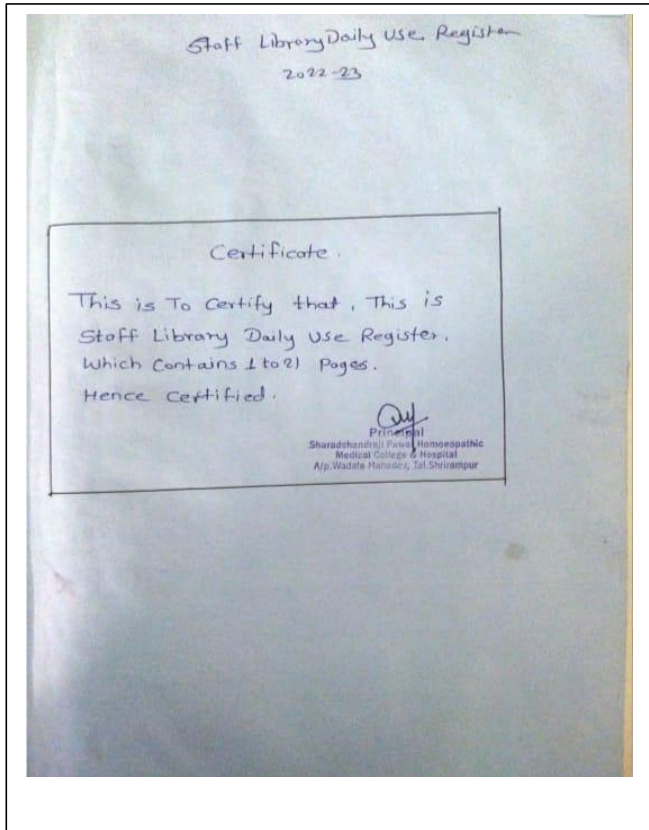 Staff Library Daily Use Register
2022-23
Certificate.
This is To Certify that, This is
Staff Library Daily Use Register.
Which Contains 1 to 21 Pages.
Hence Certified.
Principal
Sharadchandraji Pawar Homoeopathic
Medical College & Hospital
A/p.Wadala Mahadev, Tal.Shrirampur